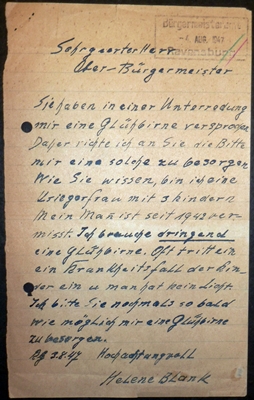 Bürgermeisteramt
-4. AUG. 1947
Ravensburg
Sehrgeerter Herr
Ober-Bürgermeister
Sie haben in einer Unterredung
mir eine Glühbirne versprochen
Daher richte ich an Sie die Bitte
mir eine solche zu besorgen
Wie Sie wissen, bin ich eine
Kriegerfrau mit 3 Kindern
Mein Man ist seit 1942 ver-
misst. Ich brauche dringend
eine Glühbirne. Oft tritt ein
ein Krankheitsfall der Kin-
der ein u man hat kein Licht.
Ich bitte Sie nochmals so bald
wie möglich mir eine Glühbirne
zu besorgen.
Rg 3.8.47 Hochachtungsvoll
Helene Blank